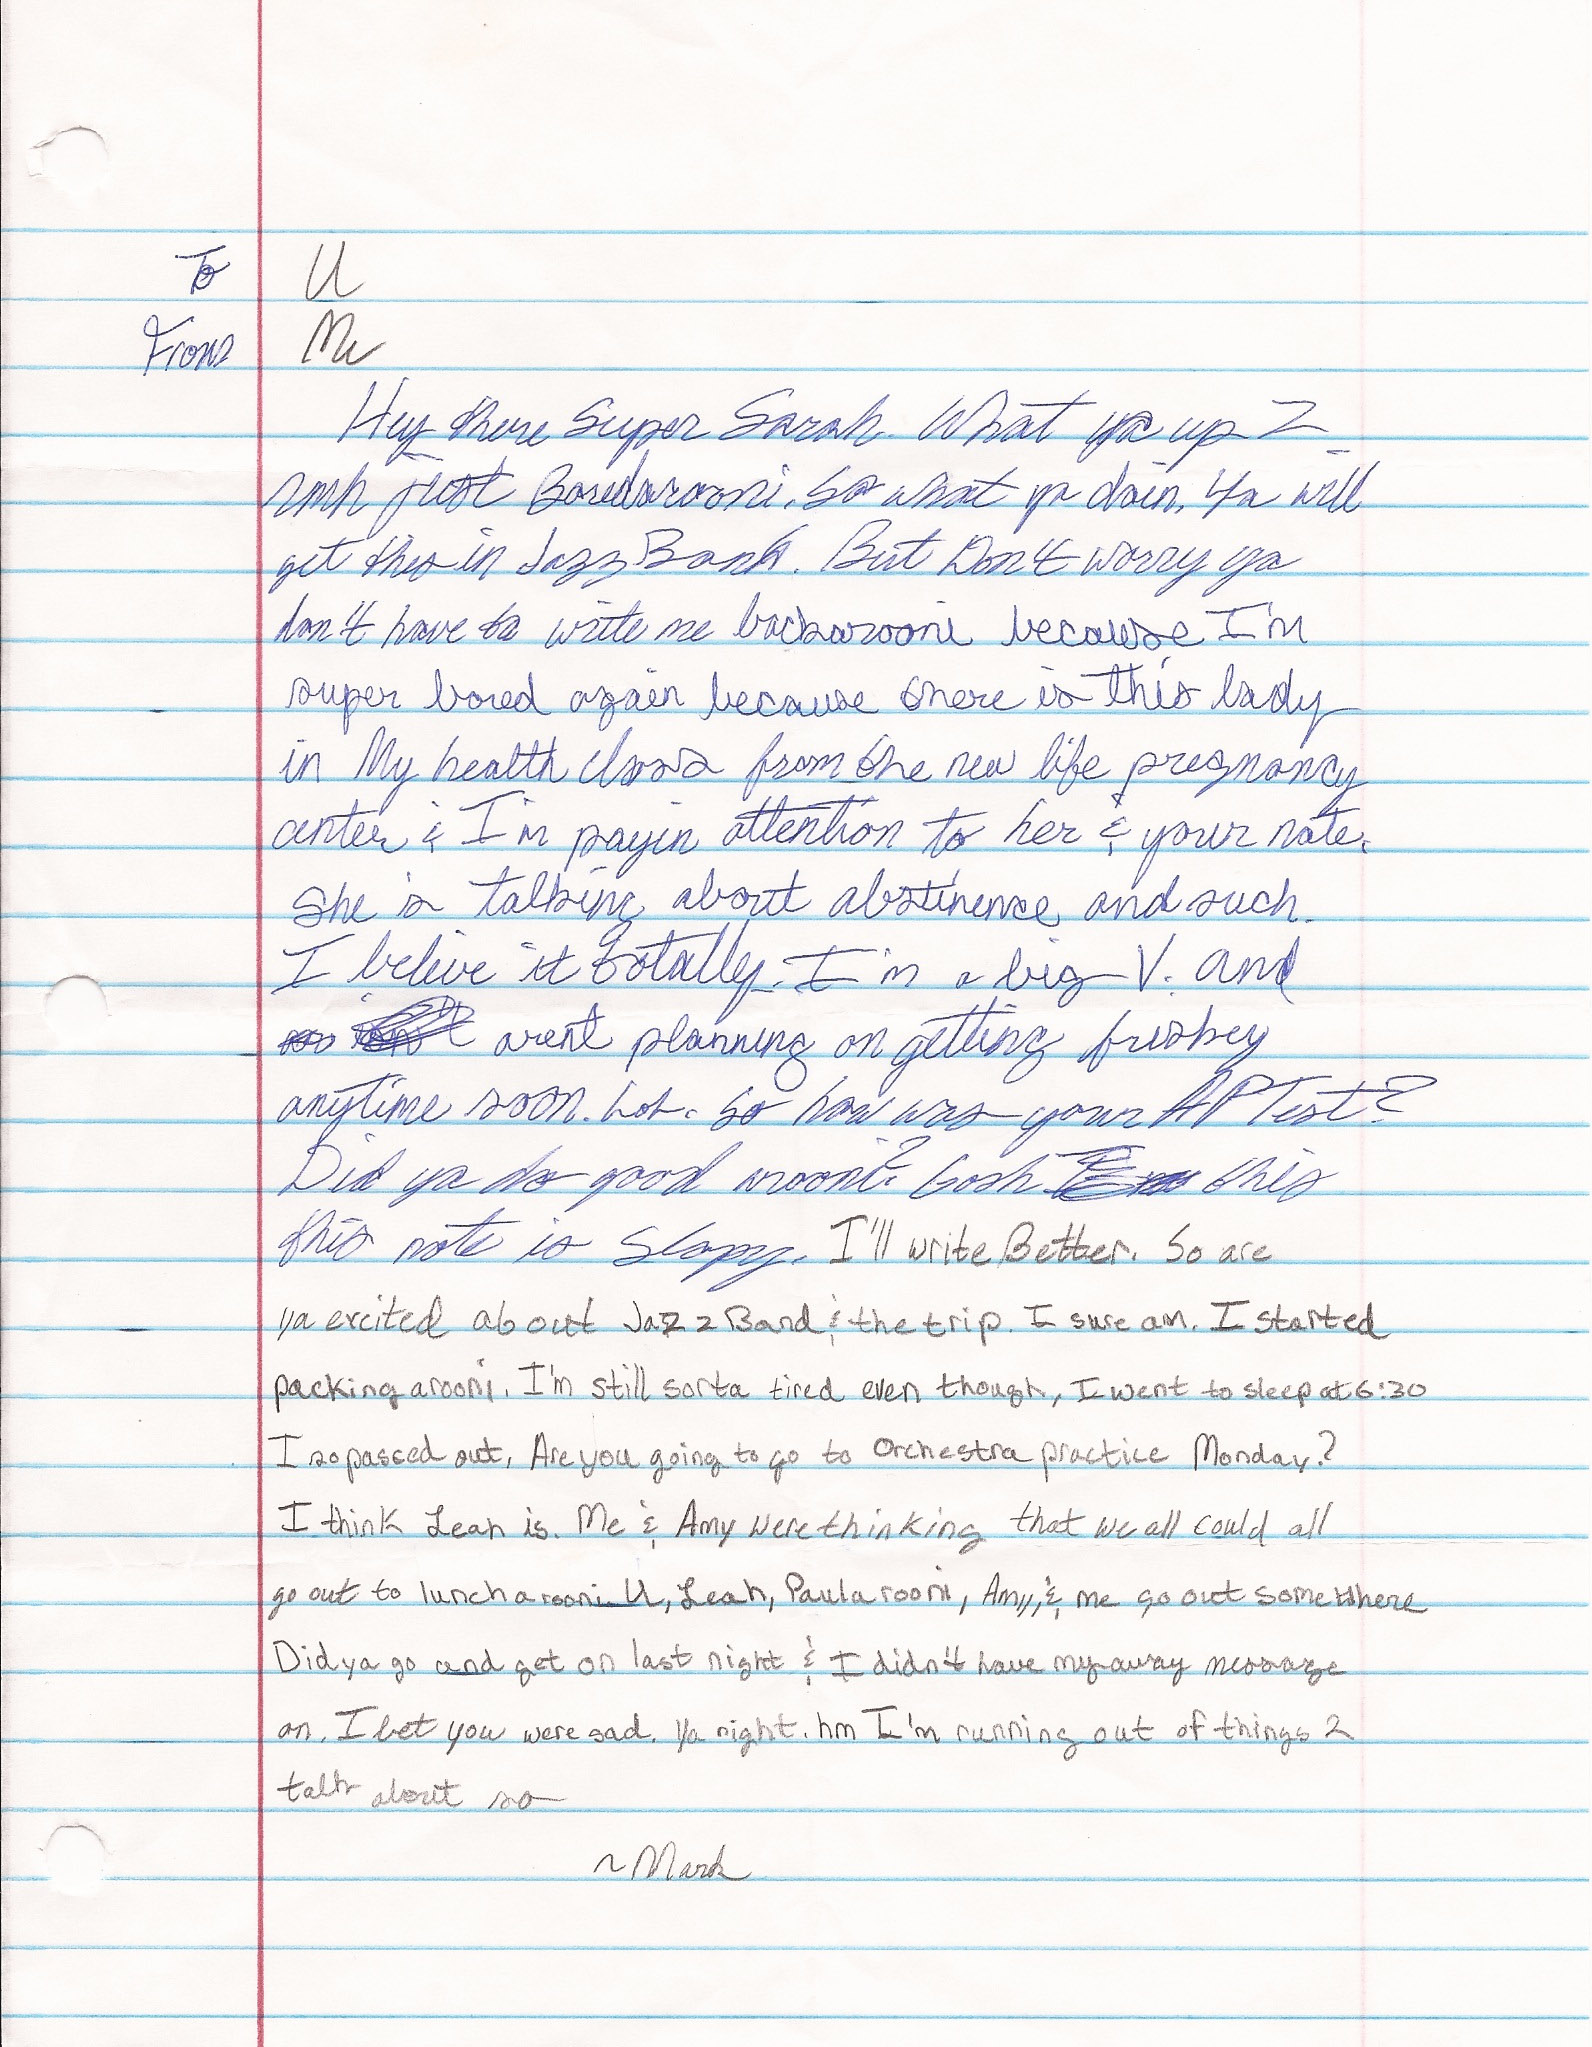 To U
From Me
Hey there Super Sarah. What ya up 2
nmh just Boredarooni. So what ya doin. Ya will
get this in Jazz Band. But Don't worry ya
don't have to write me backarooni because I'm
super bored again because there is this lady
in My health class from the new life pregnancy
center & I'm payin attention to her & your note.
She is talking about abstinence and such.
I belive it totally. I'm a big V. and
arent planning on getting friskey
anytime soon. Lol. So how was your AP Test?
Did ya do good arooni? Gosh this
this note is Slopy. I'll write Better. So are
ya excited about Jazz Band & the trip. I sure am. I started
packing arooni. I'm still sorta tired even though, I went to sleep at 6:30
I so passed out. Are you going to go to Orchestra practice Monday?
I think Leah is. Me & Amy were thinking that we all could all
go out to lunch arooni U, Leah, Paula rooni, Amy, & me go out somewhere
Did ya go and get on last night & I didn't have my away message
on. I bet you were sad. Ya right. hm I'm running out of things 2
talk about so
~Mark